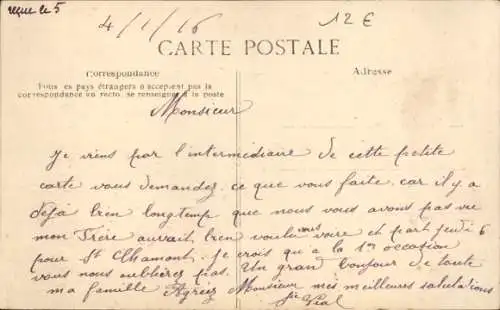 reçue le 5
4/1/16
12 €
CARTE POSTALE
Correspondance
Adresse
Tous es pays étrangers n acceptent pas la
correspondance au recto. se renseigner à la poste
Monsieur
Je viens par l'intermédiaire de cette petite
carte vous demandez ce que vous faite car il y a
déjà bien longtemp que nous vous avons pas vu
mon Frère aurait bien voulu vous voire et part jeudi 6
pour St Chamont. Je crois qu a la 1re occation
vous nous oublierez pas. Un grand bonjour de toute
ma famille Agréez Monsieur mes meilleures salutations
Vial